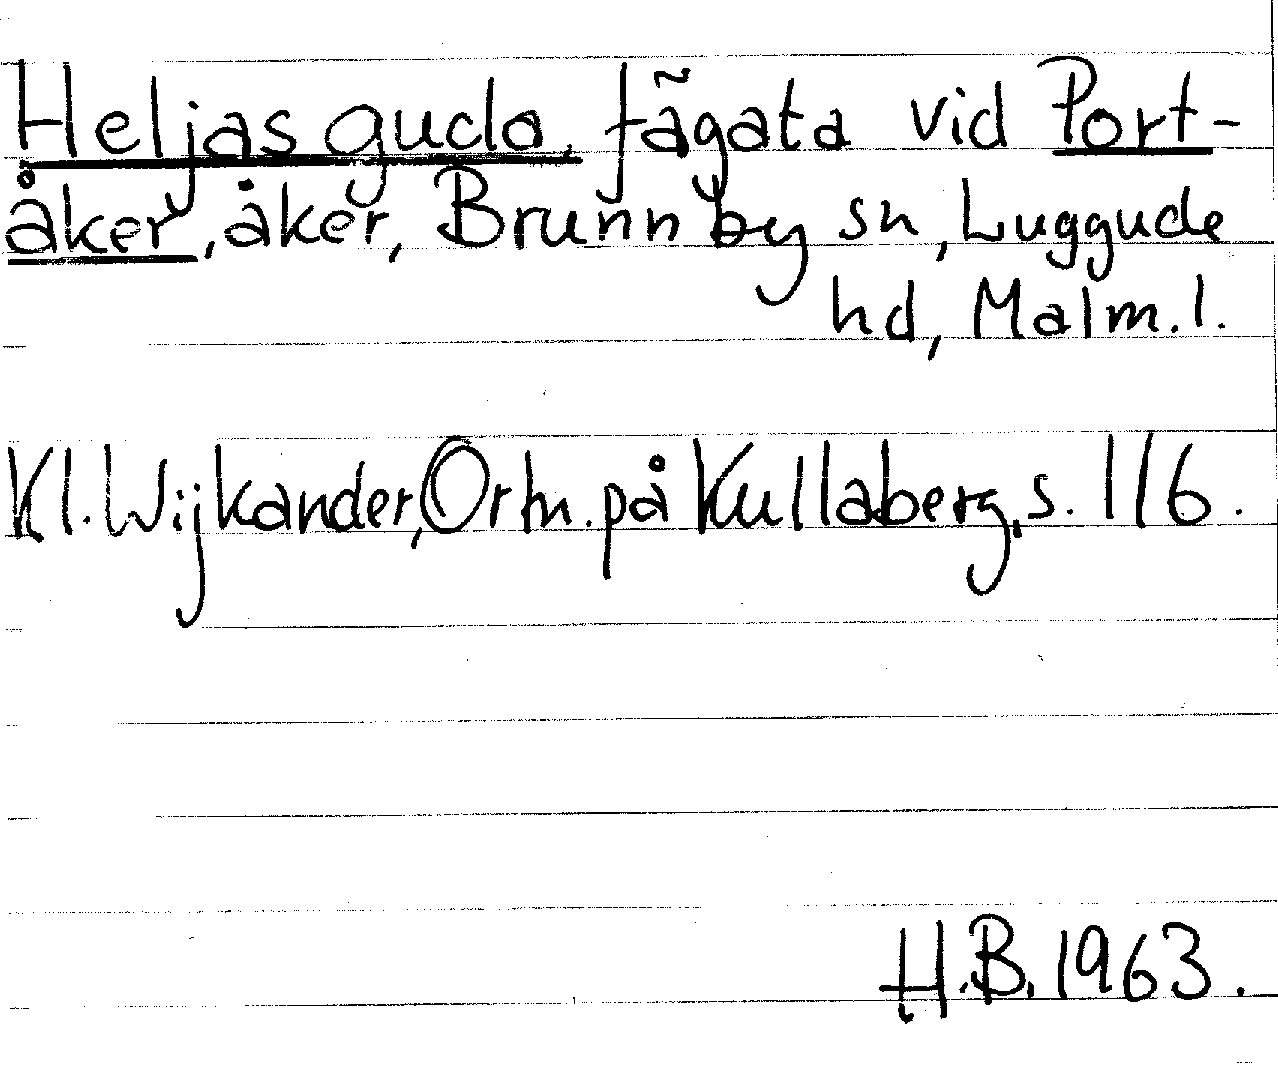 Heljas guda, fägata vid Port-
åker, åker, Brunnby sn, Luggude
hd, Malm. l.
Kl. Wijkander, Ortn. på Kullaberg, s. 116.
H.B. 1963.